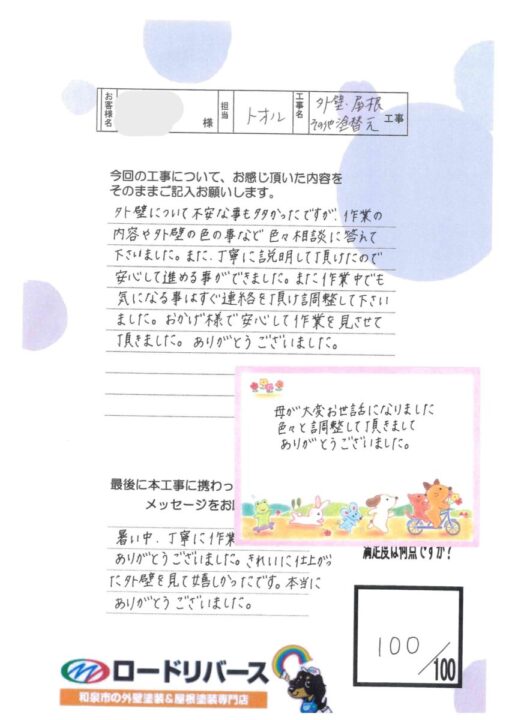 お客様名
様
担当
トオル
工事名
外壁・屋根
その他塗替え
工事
今回の工事について、お感じ頂いた内容を
そのままご記入お願いします。
外壁について不安な事も多かったですが、作業の
内容や外壁の色の事など色々相談に答えて
下さいました。また、丁寧に説明して頂けたので
安心して進める事ができました。また作業中でも
気になる事はすぐ連絡を頂け調整して下さい
ました。おかげ様で安心して作業を見させて
頂きました。ありがとうございました。
母が大変お世話になりました
色々と調整して頂きまして
ありがとうございました。
最後に本工事に携わっ
メッセージをお
暑い中、丁寧に作業
ありがとうございました。きれいに仕上がっ
た外壁を見て嬉しかったです。本当に
ありがとうございました。
満足度は何点ですか？
100
/100
ロードリバース
和泉市の外壁塗装&屋根塗装専門店